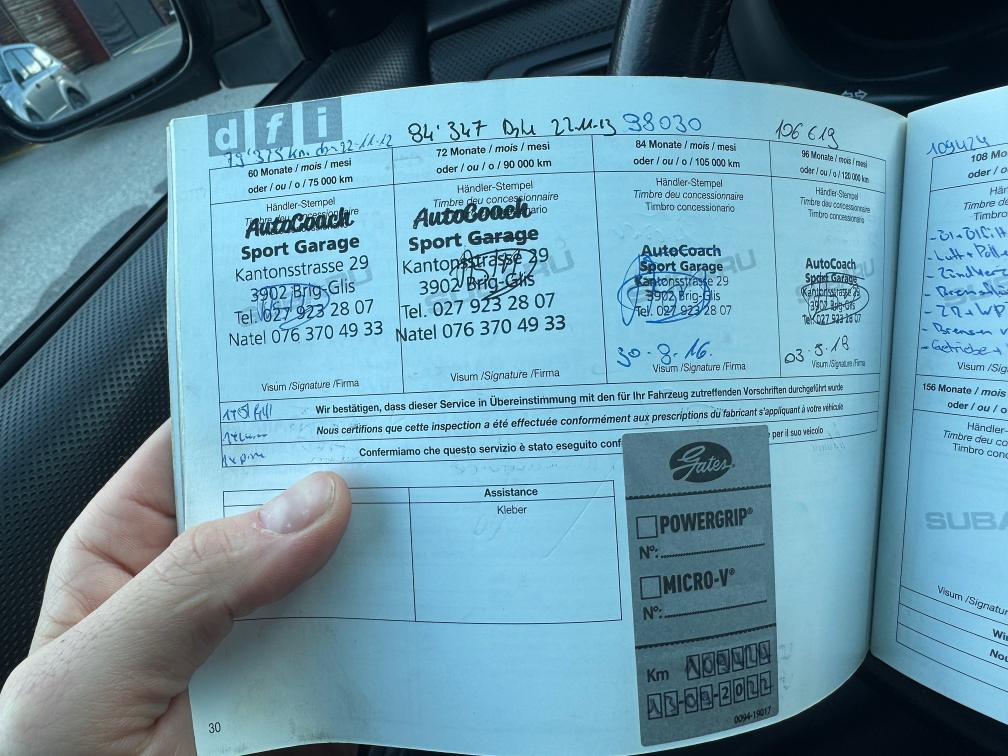 d f i
79'375 km 22-11-12
60 Monate / mois / mesi
oder / ou / o / 75 000 km
Händler-Stempel
Timbre deu concessionnaire
AutoCoach
Sport Garage
Kantonsstrasse 29
3902 Brig-Glis
Tel. 027 923 28 07
Natel 076 370 49 33
Visum /Signature /Firma
84'347 22-11-13
72 Monate / mois / mesi
oder / ou / o / 90 000 km
Händler-Stempel
AutoCoach
Sport Garage
Kantonsstrasse 29
3902 Brig-Glis
Tel. 027 923 28 07
Natel 076 370 49 33
Visum /Signature /Firma
98030
84 Monate / mois / mesi
oder / ou / o / 105 000 km
Händler-Stempel
Timbre deu concessionnaire
Timbro concessionario
AutoCoach
Sport Garage
Kantonsstrasse 29
3902 Brig-Glis
Tel. 027 923 28 07
30-8-16.
Visum /Signature/Firma
96 Monate / mois / mesi
oder / ou / o / 120 000 km
Händler-Stempel
Timbre deu concessionnaire
Timbro concessionario
AutoCoach
Sport Garage
Kantonsstrasse 29
3902 Brig-Glis
Tel. 027 923 28 07
Visum /Signature/Firma
Wir bestätigen, dass dieser Service in Übereinstimmung mit den für Ihr Fahrzeug zutreffenden Vorschriften durchgeführt wurde
Nous certifions que cette inspection a été effectuée conformément aux prescriptions du fabricant s'appliquant à votre véhicule
Confermiamo che questo servizio è stato eseguito conf per il suo veicolo
Assistance
Kleber
Gates
POWERGRIP®
Nº:
MICRO-V®
Nº:
Km
13-09-2022
0094-19017
30
109424
108 Mo
oder / o
Händ
Timbre de
Timbro
Visum /Sig
156 Monate /
oder / ou /
Händler-
Timbre deu co
Timbro conc
SUBA
Visum /Signatur
Wi
Nou